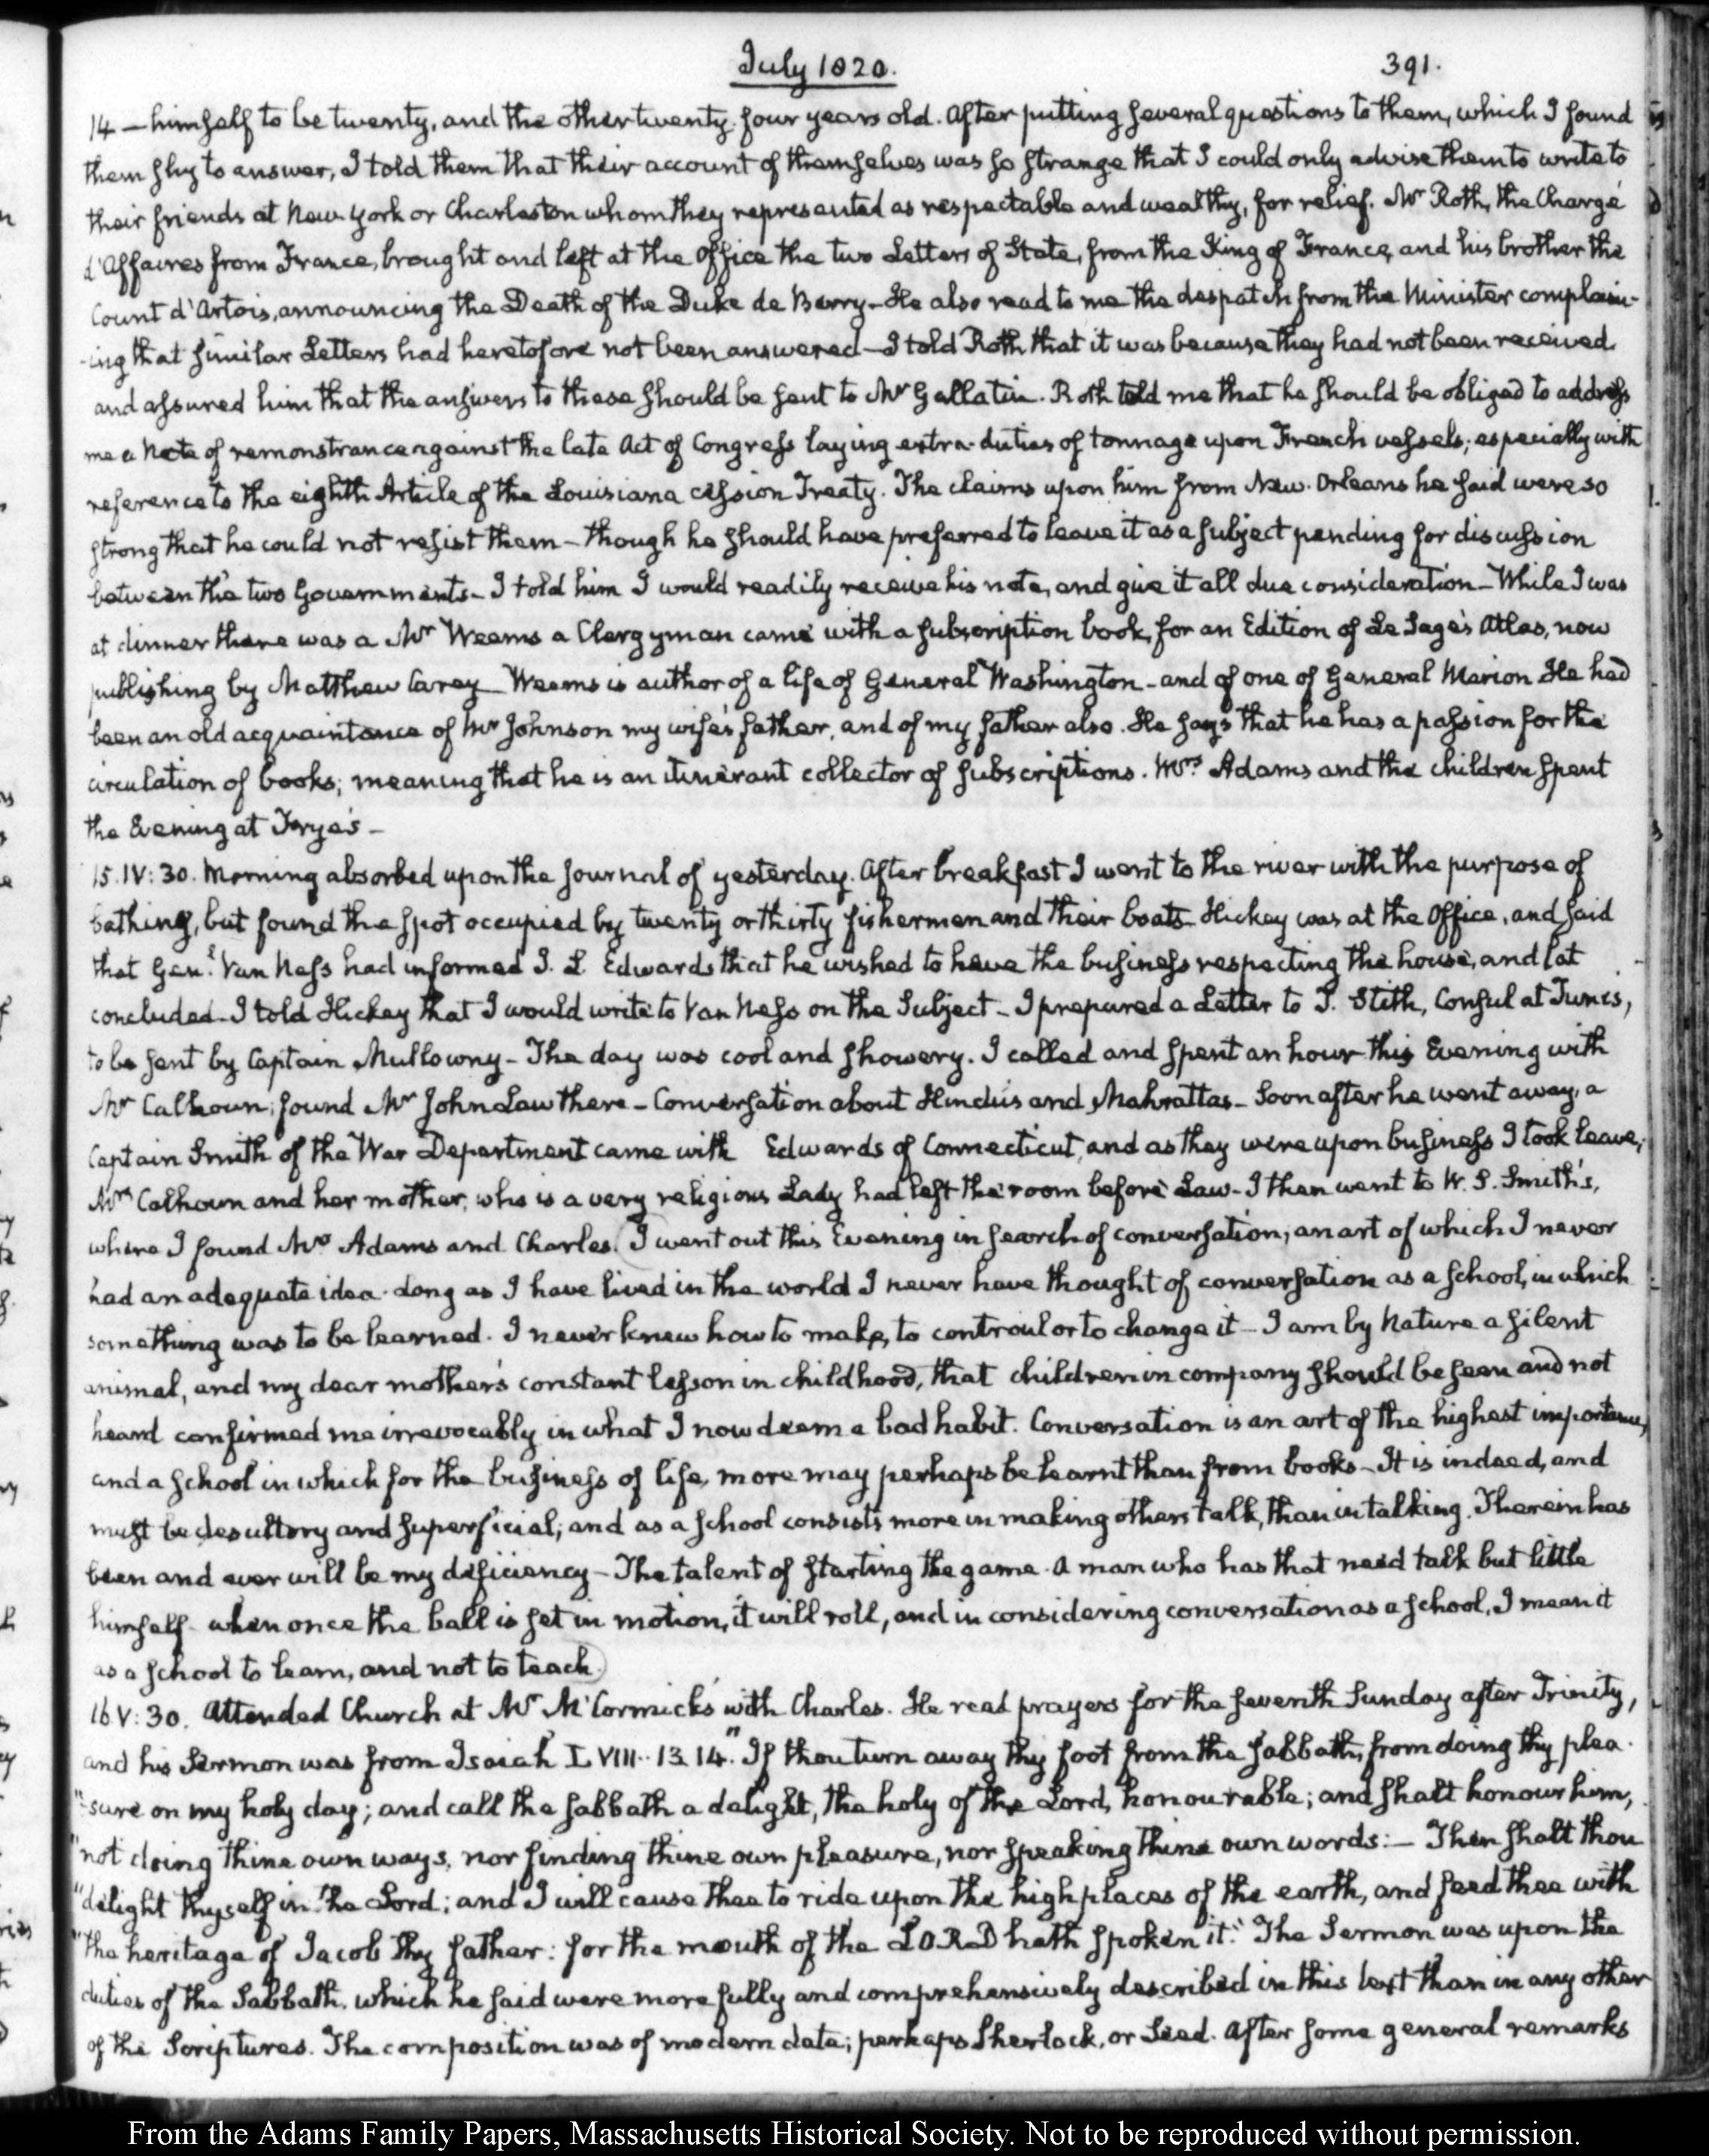 July 1820.
391.
14 — himself to be twenty, and the other twenty four years old. After putting several questions to them, which I found
them shy to answer, I told them that their account of themselves was so strange that I could only advise them to write to
their friends at New York or Charleston whom they represented as respectable and wealthy, for relief. Mr Roth, the Chargé
d'Affaires from France, brought and left at the Office the two Letters of State, from the King of France, and his brother the
Count d'Artois, announcing the Death of the Duke de Berry — He also read to me the despatch from the Minister complain-
-ing that similar Letters had heretofore not been answered — I told Roth that it was because they had not been received
and assured him that the answers to these should be sent to Mr Gallatin. Roth told me that he should be obliged to address
me a Note of remonstrance against the late Act of Congress laying extra-duties of tonnage upon French vessels; especially with
reference to the eighth Article of the Louisiana cession Treaty. The claims upon him from New-Orleans he said were so
strong that he could not resist them — though he should have preferred to leave it as a subject pending for discussion
between the two Governments — I told him I would readily receive his note, and give it all due consideration — While I was
at dinner there was a Mr Weems a Clergyman came with a subscription book, for an Edition of Le Sage's Atlas, now
publishing by Matthew Carey — Weems is author of a life of General Washington — and of one of General Marion He had
been an old acquaintance of Mr Johnson my wife's father, and of my father also. He says that he has a passion for the
circulation of books; meaning that he is an itinerant collector of subscriptions. Mrs Adams and the children spent
the Evening at Frye's —
15. IV:30. Morning absorbed upon the journal of yesterday. After breakfast I went to the river with the purpose of
bathing, but found the spot occupied by twenty or thirty fishermen and their boats — Hickey was at the Office, and said
that Genl. Van Ness had informed J. L. Edwards that he wished to have the business respecting the house, and lot
concluded — I told Hickey that I would write to Van Ness on the Subject — I prepared a Letter to T. Stith, Consul at Tunis,
to be sent by Captain Mullowny — The day was cool and showery. I called and spent an hour this Evening with
Mr Calhoun; found Mr John Law there — Conversation about Hindus and Mahrattas — Soon after he went away, a
Captain Smith of the War Department came with Edwards of Connecticut, and as they were upon business I took leave;
Mrs Calhoun and her mother, who is a very religious Lady had left the room before Law — I then went to W. S. Smith's,
where I found Mrs Adams and Charles. (I went out this Evening in search of conversation; an art of which I never
had an adequate idea. Long as I have lived in the world I never have thought of conversation as a school, in which
something was to be learned. I never knew how to make, to controul or to change it — I am by Nature a silent
animal, and my dear mother's constant lesson in childhood, that children in company should be seen and not
heard confirmed me irrevocably in what I now deem a bad habit. Conversation is an art of the highest importance,
and a school in which for the business of life, more may perhaps be learnt than from books — It is indeed, and
must be desultory and superficial; and as a school consists more in making others talk, than in talking. Therein has
been and ever will be my deficiency — The talent of starting the game. A man who has that need talk but little
himself. when once the ball is set in motion, it will roll, and in considering conversation as a school, I mean it
as a school to learn, and not to teach.)
16 V:30. Attended Church at Mr McCormick's with Charles. He read prayers for the seventh Sunday after Trinity,
and his Sermon was from Isaiah LVIII. 13. 14. "If thou turn away thy foot from the sabbath, from doing thy plea-
"-sure on my holy day; and call the sabbath a delight, the holy of the Lord, honourable; and shalt honour him,
"not doing thine own ways, nor finding thine own pleasure, nor speaking thine own words: — Then shalt thou
"delight thyself in the Lord; and I will cause thee to ride upon the high places of the earth, and feed thee with
"the heritage of Jacob thy father: for the mouth of the LORD hath spoken it." The Sermon was upon the
duties of the Sabbath, which he said were more fully and comprehensively described in this text than in any other
of the Scriptures. The composition was of modern date; perhaps Sherlock, or Seed. After some general remarks
From the Adams Family Papers, Massachusetts Historical Society. Not to be reproduced without permission.